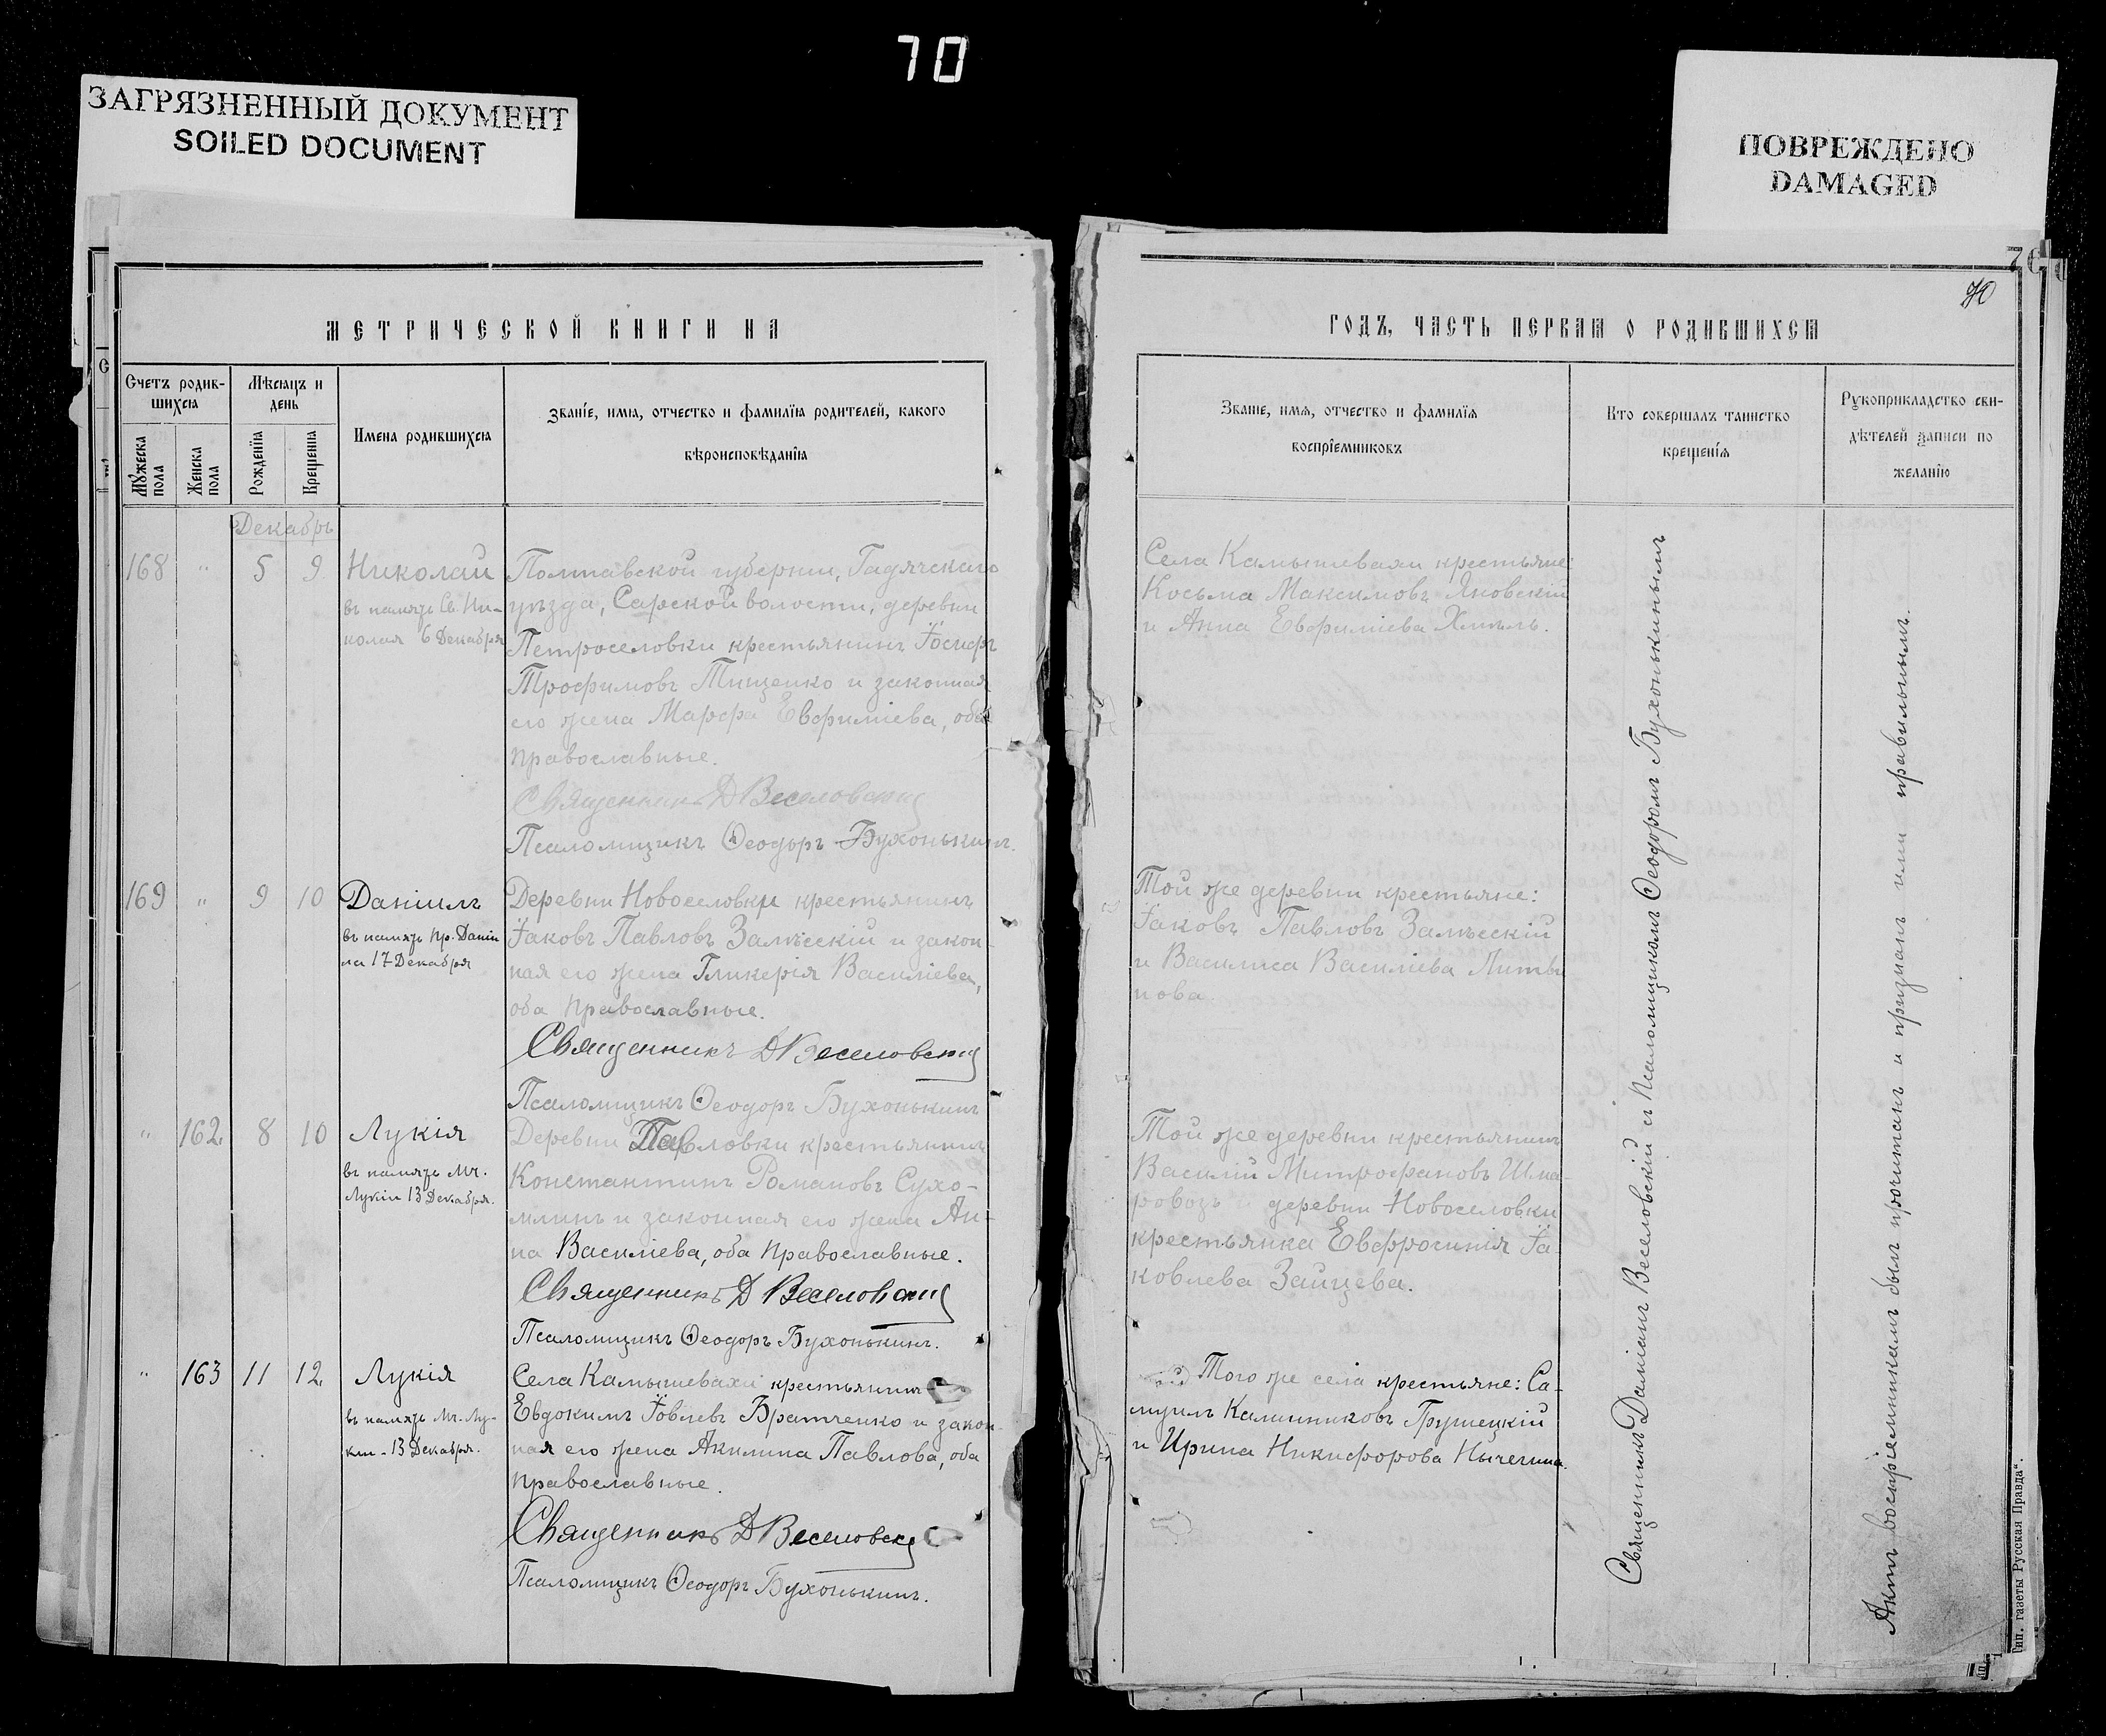 70
ЗАГРЯЗНЕННЫЙ ДОКУМЕНТ
SOILED DOCUMENT
ПОВРЕЖДЕНО
DAMAGED
МЕТРИЧЕСКОЙ КНИГИ НА
Счетъ родив-
шихся
Мѣсяцъ и
день
Мужеска пола
Женска пола
Рожденія
Крещенія
Имена родившихся
Званіе, имя, отчество и фамилія родителей, какого
вѣроисповѣданія
Декабрь
168 " 5 9 Николай
въ память Св. Ни-
колая 6 Декабря
Полтавской губерніи, Гадячскаго
уѣзда, Сарской волости, деревни
Петроселовки крестьянинъ Іосифъ
Трофимовъ Тищенко и законная
его жена Марфа Евфиміева, оба
православные.
Священникъ Д Веселовскій
Псаломщикъ Ѳеодоръ Бухонькинъ.
169 " 9 10 Даніилъ
въ память Пр. Даніи-
ла 17 Декабря
Деревни Новоселовки крестьянинъ
Іаковъ Павловъ Залѣсскій и закон-
ная его жена Гликерія Василіева,
оба православные.
Священникъ Д Веселовскій
Псаломщикъ Ѳеодоръ Бухонькинъ
" 162. 8 10 Лукія
въ память Мч.
Лукіи 13 Декабря.
Деревни Павловки крестьянинъ
Константинъ Романовъ Сухо-
млинъ и законная его жена Ан-
на Василіева, оба православные.
Священникъ Д Веселовскій
Псаломщикъ Ѳеодоръ Бухонькинъ.
" 163 11 12. Лукія
въ память Мч. Лу-
кіи - 13 Декабря.
Села Камышевахи крестьянинъ
Евдокимъ Іовлевъ Братченко и закон-
ная его жена Акилина Павлова, оба
православные.
Священникъ Д Веселовскій
Псаломщикъ Ѳеодоръ Бухонькинъ.
70
ГОДЪ, ЧАСТЬ ПЕРВАЯ О РОДИВШИХСЯ
Званіе, имя, отчество и фамилія
воспріемниковъ
Кто совершалъ таинство
крещенія
Рукоприкладство сви-
дѣтелей записи по
желанію
Села Камышевахи крестьяне:
Косьма Максимовъ Яновскій
и Анна Евфиміева Хмѣль.
Той же деревни крестьяне:
Іаковъ Павловъ Залѣсскій
и Василиса Василіева Литви
нова.
Той же деревни крестьянинъ
Василій Митрофановъ Шма-
ровозъ и деревни Новоселовки
крестьянка Евфросинія Іа-
ковлева Зайцева.
Того же села крестьяне: Са-
муилъ Калинниковъ Грушецкій
и Ирина Никифорова
Священникъ Даміанъ Веселовскій съ Псаломщикомъ Ѳеодоромъ Бухонькинымъ
Актъ воспріемникамъ былъ прочитанъ и признанъ ими правильнымъ.
Тип. газеты Русская Правда".